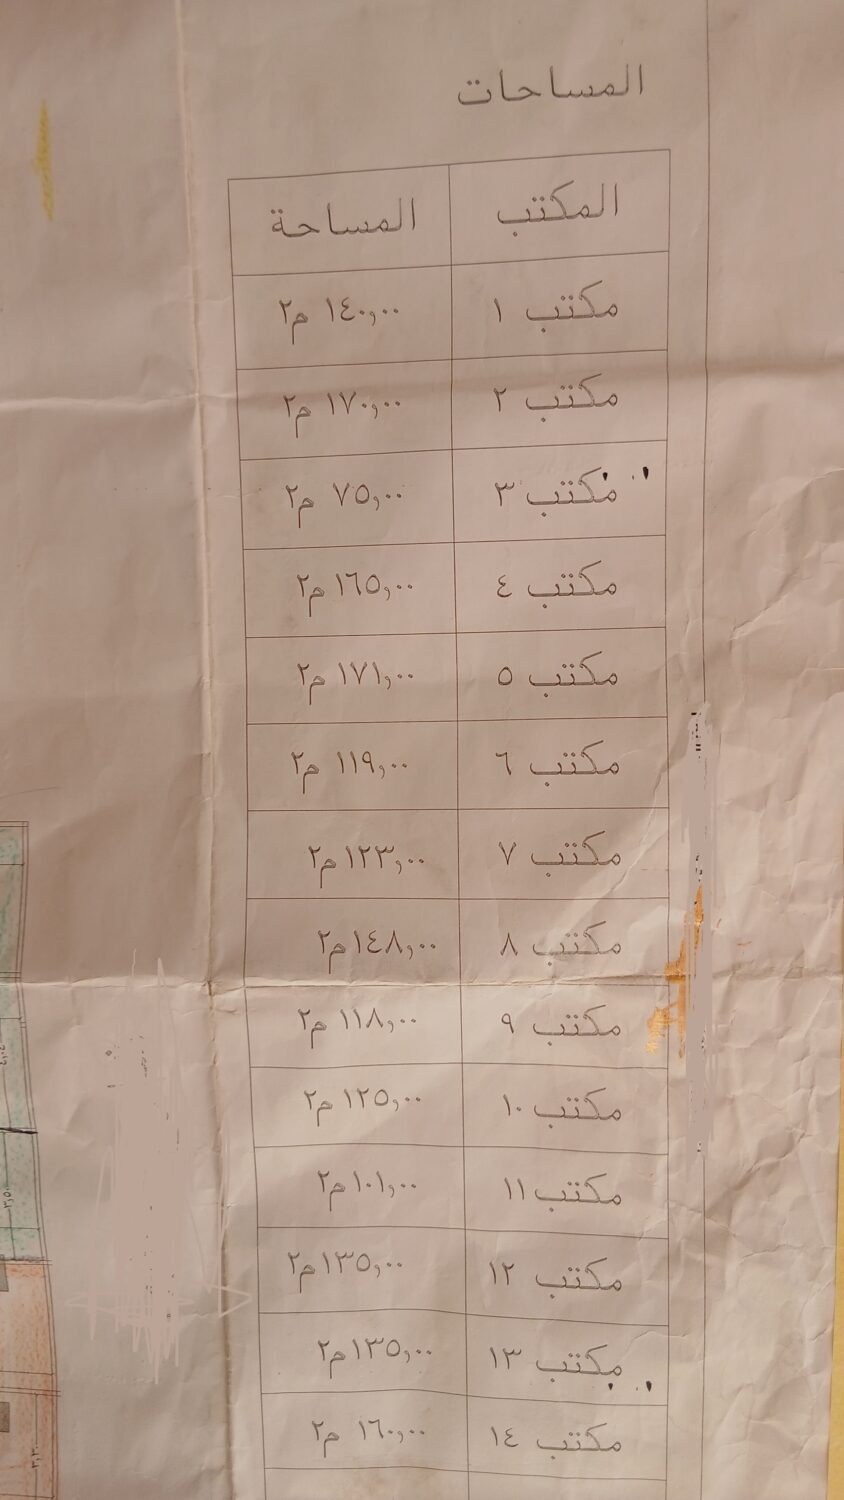 المساحات
المكتب المساحة
مكتب ١ ١٤٠,٠٠ م٢
مكتب ٢ ١٧٠,٠٠ م٢
مكتب ٣ ٧٥,٠٠ م٢
مكتب ٤ ١٦٥,٠٠ م٢
مكتب ٥ ١٧١,٠٠ م٢
مكتب ٦ ١١٩,٠٠ م٢
مكتب ٧ ١٢٣,٠٠ م٢
مكتب ٨ ١٤٨,٠٠ م٢
مكتب ٩ ١١٨,٠٠ م٢
مكتب ١٠ ١٢٥,٠٠ م٢
مكتب ١١ ١٠١,٠٠ م٢
مكتب ١٢ ١٣٥,٠٠ م٢
مكتب ١٣ ١٣٥,٠٠ م٢
مكتب ١٤ ١٦٠,٠٠ م٢